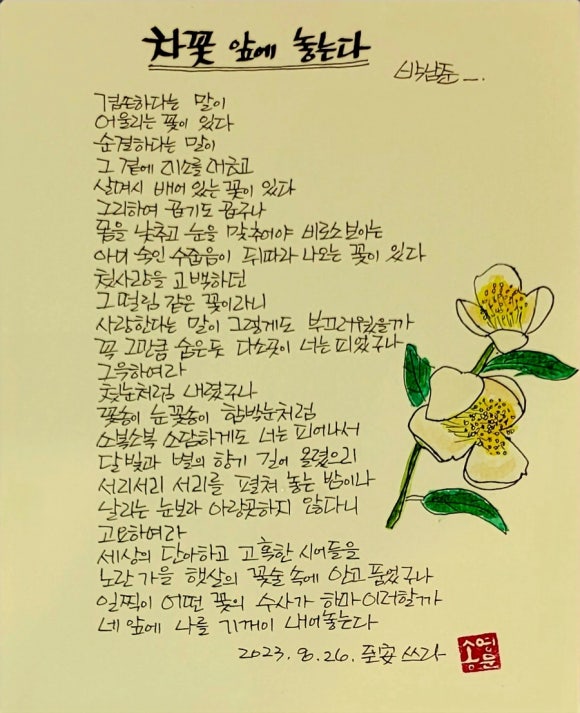 차꽃 앞에 놓는다
박남준
겸손하다는 말이
어울리는 꽃이 있다
순결하다는 말이
그 곁에 미소를 머금고
살며시 배어 있는 꽃이 있다
그리하여 곱기도 곱구나
몸을 낮추고 눈을 맞추어야 비로소 보이는
아미 숙인 수줍음이 뒤따라 나오는 꽃이 있다
첫사랑을 고백하던
그 떨림 같은 꽃이라니
사랑한다는 말이 그렇게도 부끄러웠을까
꼭 그만큼 숨은듯 다소곳이 너는 피었구나
그윽하여라
첫눈처럼 내렸구나
꽃송이 눈꽃송이 함박눈처럼
소복소복 소담하게도 너는 피어나서
달빛과 별의 향기 길어 올렸으리
서리서리 서리를 펼쳐 놓는 밤이나
날리는 눈보라 아랑곳하지 않다니
고요하여라
세상의 단아하고 고혹한 시어들을
노란 가을 햇살의 꽃술 속에 안고 품었구나
일찍이 어떤 꽃의 수사가 하마 이러할까
네 앞에 나를 기꺼이 내어놓는다
2023. 8. 26. 쓰다
송영문